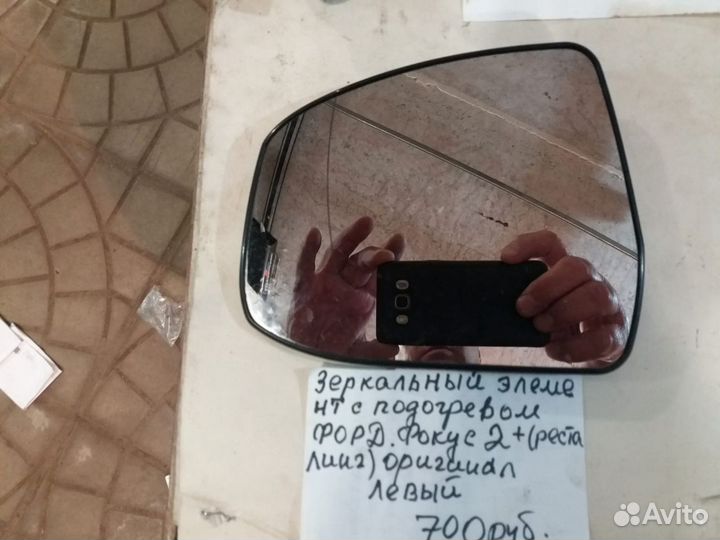 Зеркальный элеме
нт с подогревом
ФОРД. Фокус 2+(реста
линг) оригинал
левый
700руб.
Avito